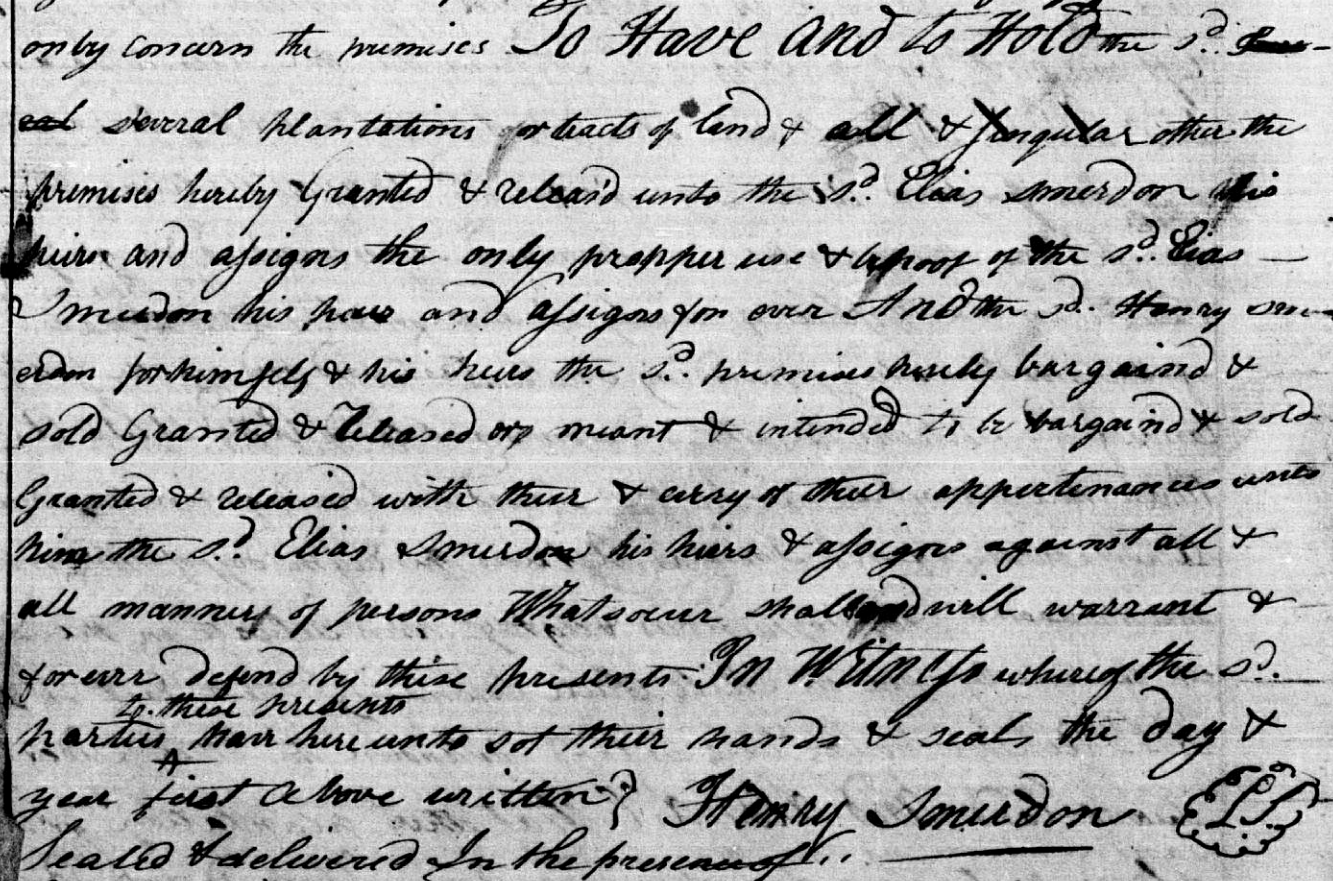 only concern the premises To Have and to Hold the sd.
several plantations or tracts of land & all & singular other the
premises hereby Granted & releasd unto the sd. Elias Smerdon his
heirs and assigns the only propper use & behoof of the sd. Elias
Smerdon his heirs and assigns for ever And the sd. Henry Sm-
erdon for himself & his heirs the sd. premises hereby bargaind &
sold Granted & Released or meant & intended to be bargaind & sold
Granted & released with their & every of their appertenances unto
him the sd. Elias Smerdon his hiers & assigns against all &
all manner of persons Whatsoever shall and will warrant &
for ever defend by these presents In Witness whereof the sd.
to these presents
parties have hereunto set their hands & seals the day &
year first above written } Henry Smerdon LS
Sealed & delivered In the presence of